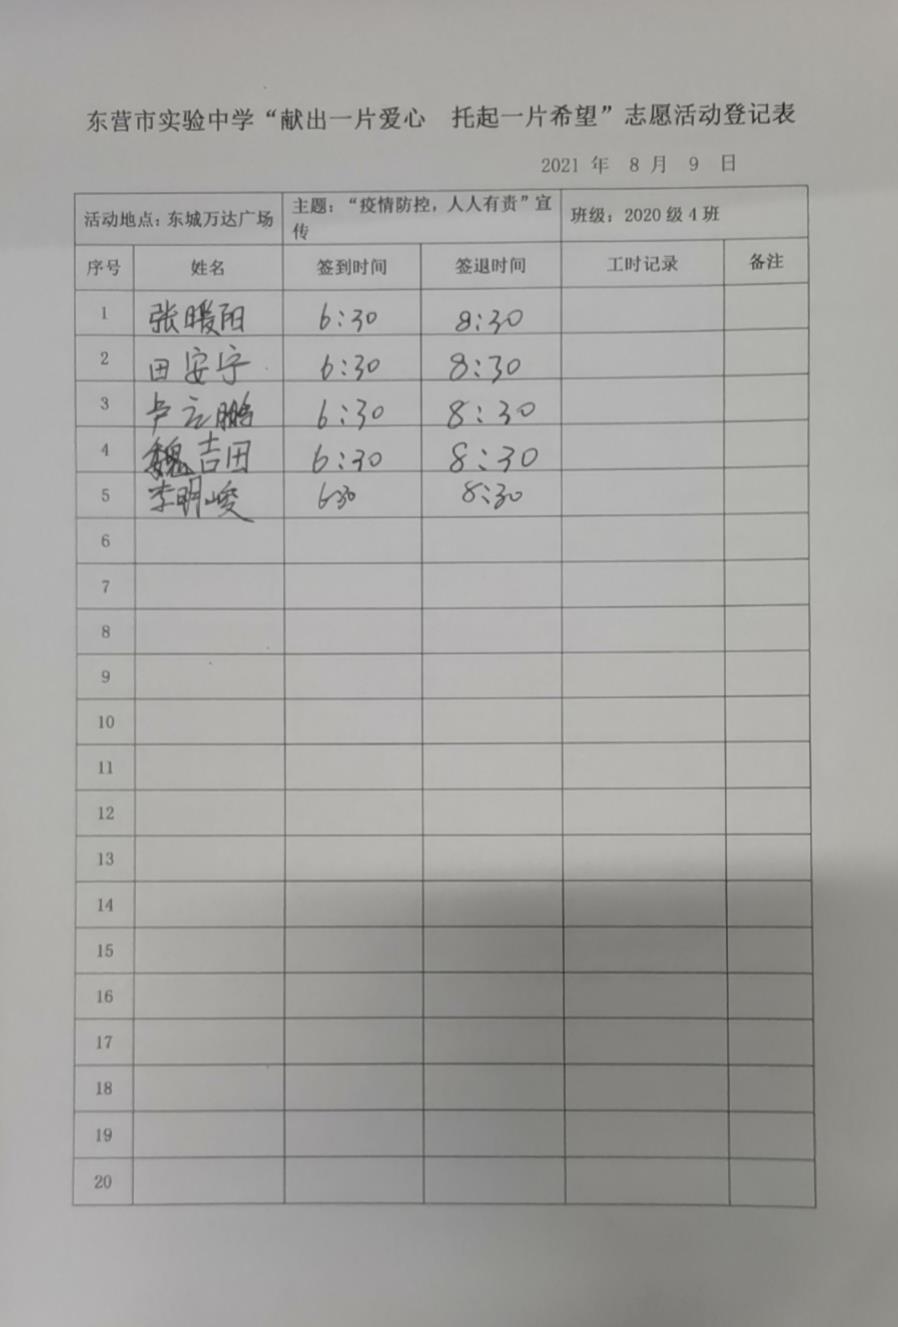 东营市实验中学“献出一片爱心 托起一片希望”志愿活动登记表
2021 年 8 月 9 日
活动地点：东城万达广场 主题：“疫情防控，人人有责”宣传 班级：2020 级 4 班
序号 姓名 签到时间 签退时间 工时记录 备注
1 张暖阳 6:30 8:30
2 田安宇 6:30 8:30
3 卢立鹏 6:30 8:30
4 魏吉田 6:30 8:30
5 李明峻 6:30 8:30
6
7
8
9
10
11
12
13
14
15
16
17
18
19
20